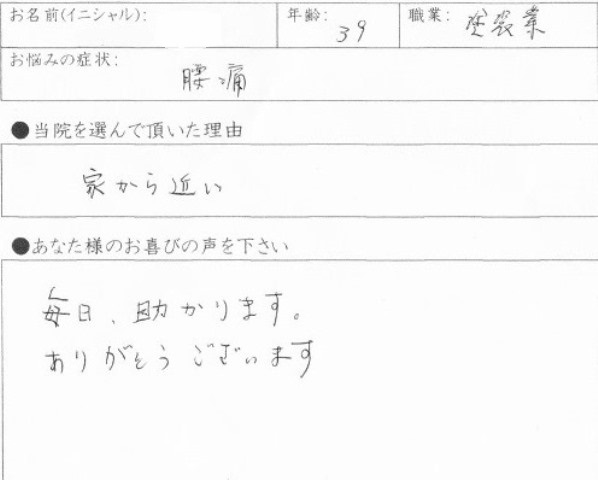 お名前(イニシャル): 年齢: 39 職業: 塗装業
お悩みの症状: 腰痛
●当院を選んで頂いた理由
家から近い
●あなた様のお喜びの声を下さい
毎日、助かります。
ありがとうございます